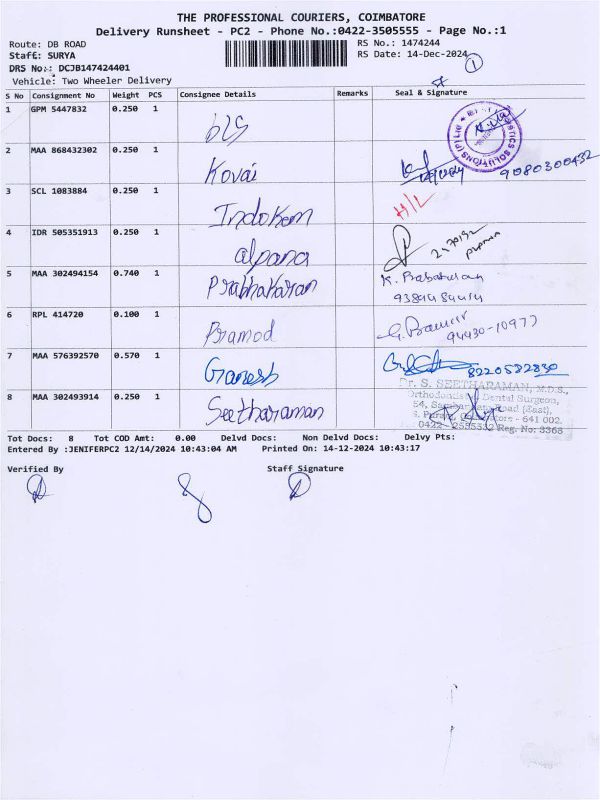 THE PROFESSIONAL COURIERS, COIMBATORE
Delivery Runsheet - PC2 - Phone No.:0422-3505555 - Page No.:1
Route: DB ROAD RS No.: 1474244
Staff: SURYA RS Date: 14-Dec-2024 1
DRS No.: DCJB147424401
Vehicle: Two Wheeler Delivery
S No Consignment No Weight PCS Consignee Details Remarks Seal & Signature
1 GPM 5447832 0.250 1
2 MAA 868432302 0.250 1 Kovai 9080300432
3 SCL 1083884 0.250 1 Indokem H/L
4 IDR 505351913 0.250 1 alpana
5 MAA 302494154 0.740 1 Prabhakaran K.
6 RPL 414720 0.100 1 Pramod 94430-10977
7 MAA 576392570 0.570 1 Ganesh 8220532830
8 MAA 302493914 0.250 1 Seetharaman
Dr. S. SEETHARAMAN, M.D.S.,
Orthodontist Dental Surgeon,
54, Road (East),
- 641 002.
0422 - Reg. No: 3365
Tot Docs: 8 Tot COD Amt: 0.00 Delvd Docs: Non Delvd Docs: Delvy Pts:
Entered By :JENIFERPC2 12/14/2024 10:43:04 AM Printed On: 14-12-2024 10:43:17
Verified By Staff Signature